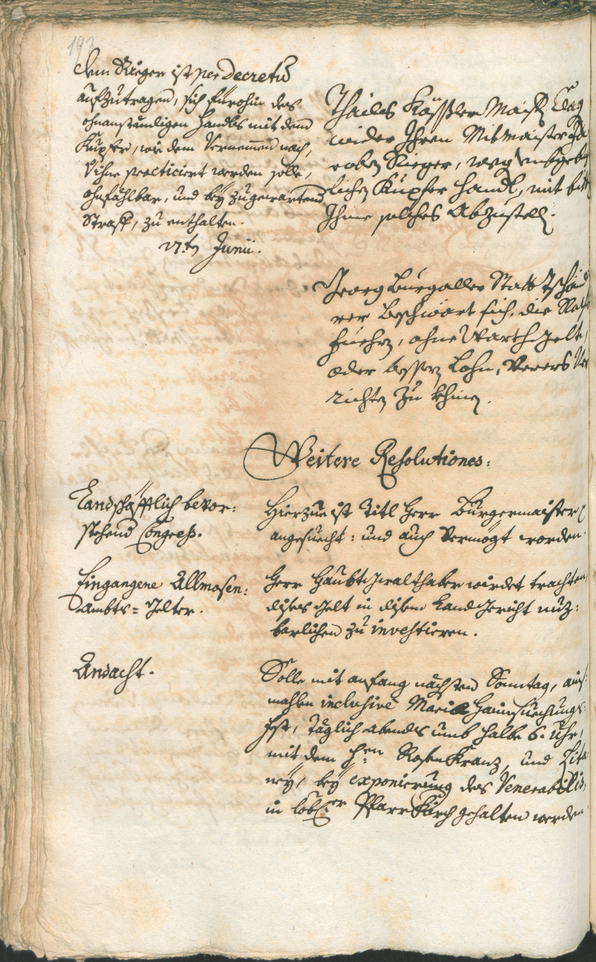 192
dem Rieger ist per decretum
aufzutragen, sich fürohin des
ohnanständigen Handls mit dem
Kupfer, wie dem Vernemmen nach,
bishero practiciert worden solle,
ohnfählbar, und bey zugewartend
Straff, zu enthalten.
17ten Junii.
Thails Kössler Maister Clag
wider Ihren Mitmaister
Rieger, weg
lichen Kupfer Handl, mit bitt
Ihme solches Abzustell.
Georg Burgaller Statt
rer beschwört sich, die
fuehren, ohne Warth gelt,
oder bessern Lohn, verers
richten zu khinen.
Weitere Resolutiones:
Landschäfftlich bevor:
stehend Congress.
Hierzue ist Titl Herr Burgermaister
angesuecht: und auch vermögt worden.
Eingangene Allmosen:
Ambts=Gelter.
Herr Haubtgwalthaber würdet trachten
dises Gelt in disem Landgericht nuz:
barlichen zu investieren.
Andacht.
Solle mit anfang nächsten Sonntag, ain=
mahlen inclusive Mariae Haimsuechungs=
Fest, täglich abends umb halbe 6. uhr,
mit dem hen Rosen Kranz, und Lita=
ney, bey exponierung des Venerabilis,
in lober Pfarrkürch gehalten werden